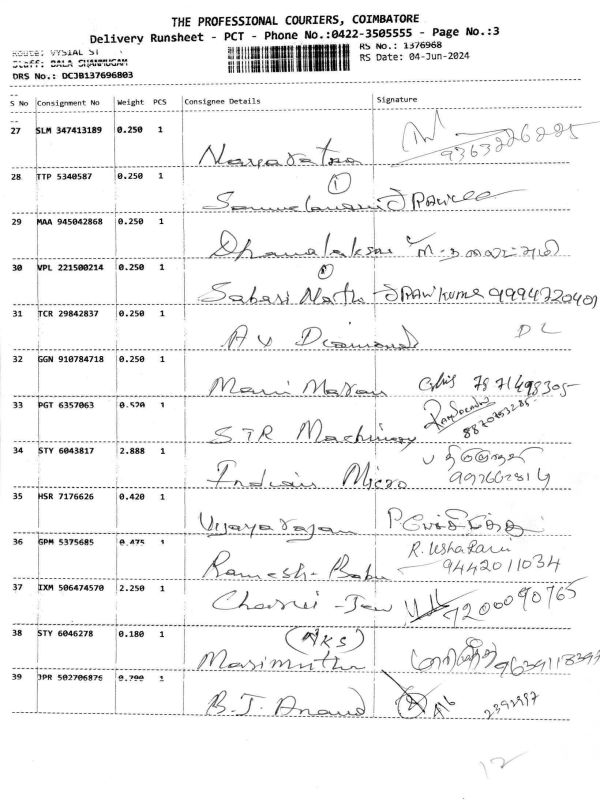 THE PROFESSIONAL COURIERS, COIMBATORE
Delivery Runsheet - PCT - Phone No.:0422-3505555 - Page No.:3
Route: VYSIAL ST
Staff: BALA SHANMUGAM
DRS No.: DCJB137696803
RS No.: 1376968
RS Date: 04-Jun-2024
S No Consignment No Weight PCS Consignee Details Signature
27 SLM 347413189 0.250 1 9363226285
28 TTP 5340587 0.250 1
29 MAA 945042868 0.250 1 Dhanalakshmi
30 VPL 221500214 0.250 1 Sabari Natha 9994720401
31 TCR 29842837 0.250 1 A V Diamond DL
32 GGN 910784718 0.250 1 Mani Maran 7871498305
33 PGT 6357063 0.520 1 STR Machinery 8870753285
34 STY 6043817 2.888 1 Indian Micro
35 HSR 7176626 0.420 1 Vijayarajan
36 GPM 5375685 0.475 1 Ramesh Babu R. Usha Rani 9442011034
37 IXM 506474570 2.250 1 7200090765
38 STY 6046278 0.180 1 (AKS) Marimuthu
39 JPR 502706876 0.790 1 B.J. Anand 2392997
12